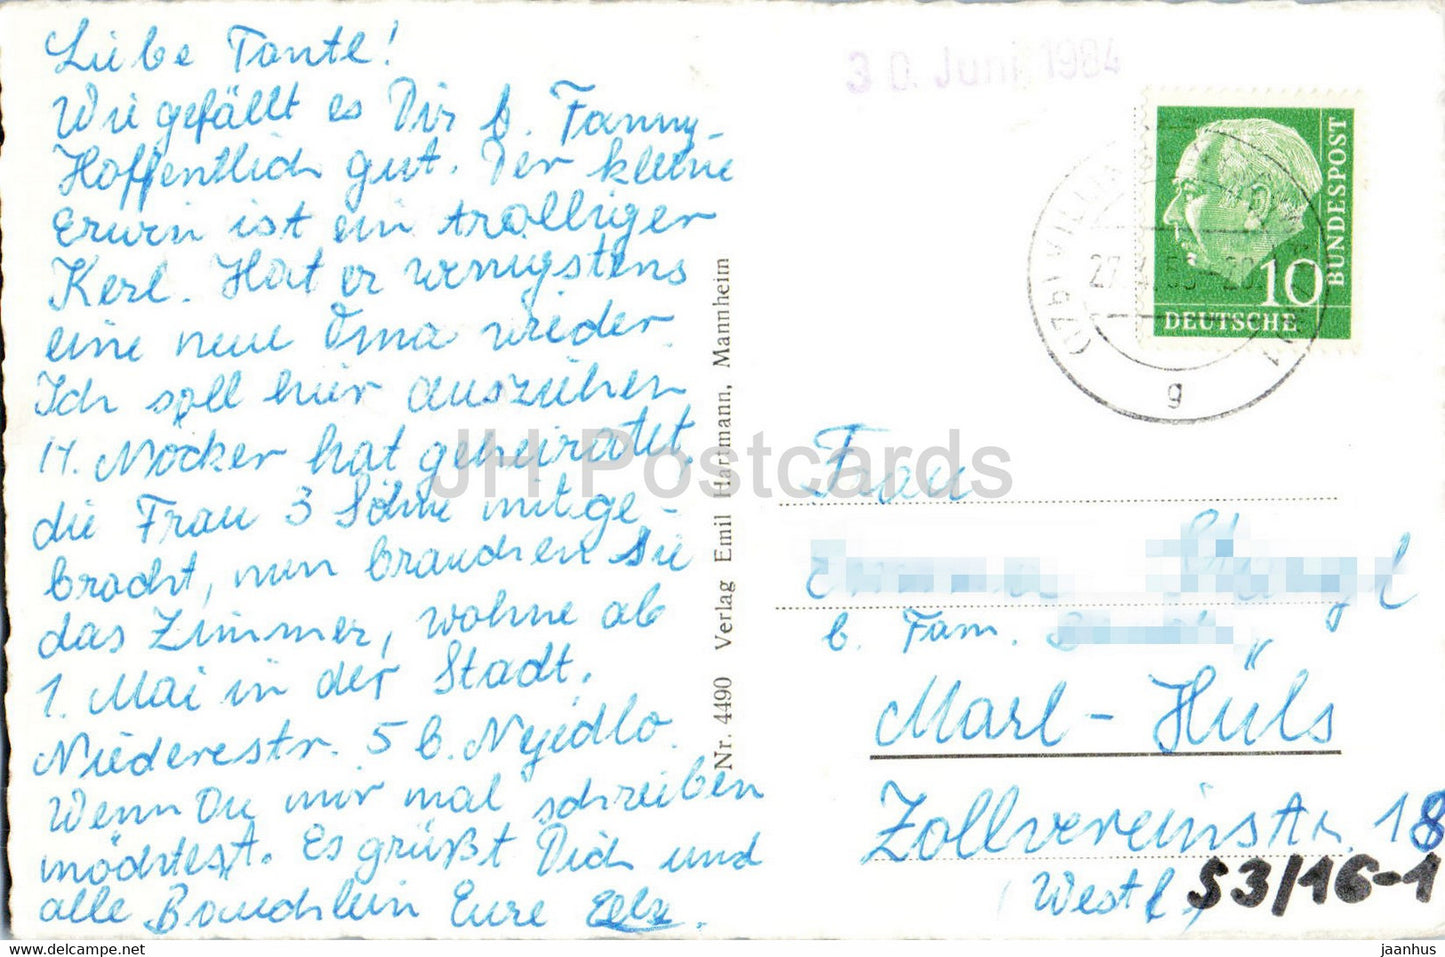 Liebe Tante!
Wie gefällt es Dir b. Fanny-
Hoffentlich gut. Der kleine
Erwin ist ein trolliger
Kerl. Hat er wenigstens
eine neue Oma wieder.
Ich soll hier ausziehen
H. Nocker hat geheiratet,
die Frau 3 Söhne mitge-
bracht, nun brauchen sie
das Zimmer, wohne ab
1. Mai in der Stadt.
Niederestr. 5 b. Nejedlo.
Wenn Du mir mal schreiben
möchtest. Es grüßt Dich und
alle Eure
Nr. 4490 Verlag Emil Hartmann, Mannheim
30. Juni 1984
DEUTSCHE
BUNDESPOST
10
g
Frau
b. Fam.
Marl-Hüls
Zollvereinstr. 18
(Westf.)
S3/16-1
JH Postcards
www.hippostcard.com
jaanhus